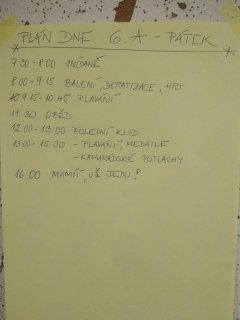 PLÁN DNE 6.A - PÁTEK
7.30 - 8:00 SNÍDANĚ
8:00 - 9.15 BALENÍ, DERATIZACE, HRY
9.15 - 10:45 PLAVÁNÍ
11.30 OBĚD
12:00 - 13.00 POLEDNÍ KLID
13:00 - 15.30 - PLAVÁNÍ, MEDAILE
- KAMARÁDSKÉ POTLACHY
16.00 MAMIÍ, UŽ JEDU!